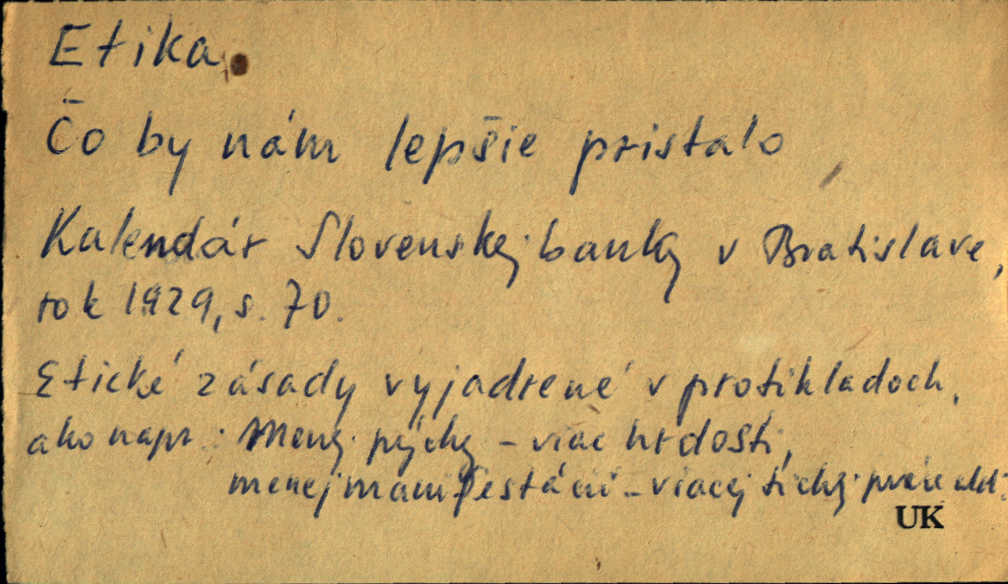 Etika
Čo by nám lepšie pristalo
Kalendár Slovenskej banky v Bratislave,
rok 1929, s. 70.
Etické zásady vyjadrené v protikladoch,
ako napr.: Menej pýchy – viac hrdosti,
menej manifestácií – viacej tichej práce atď.
UK